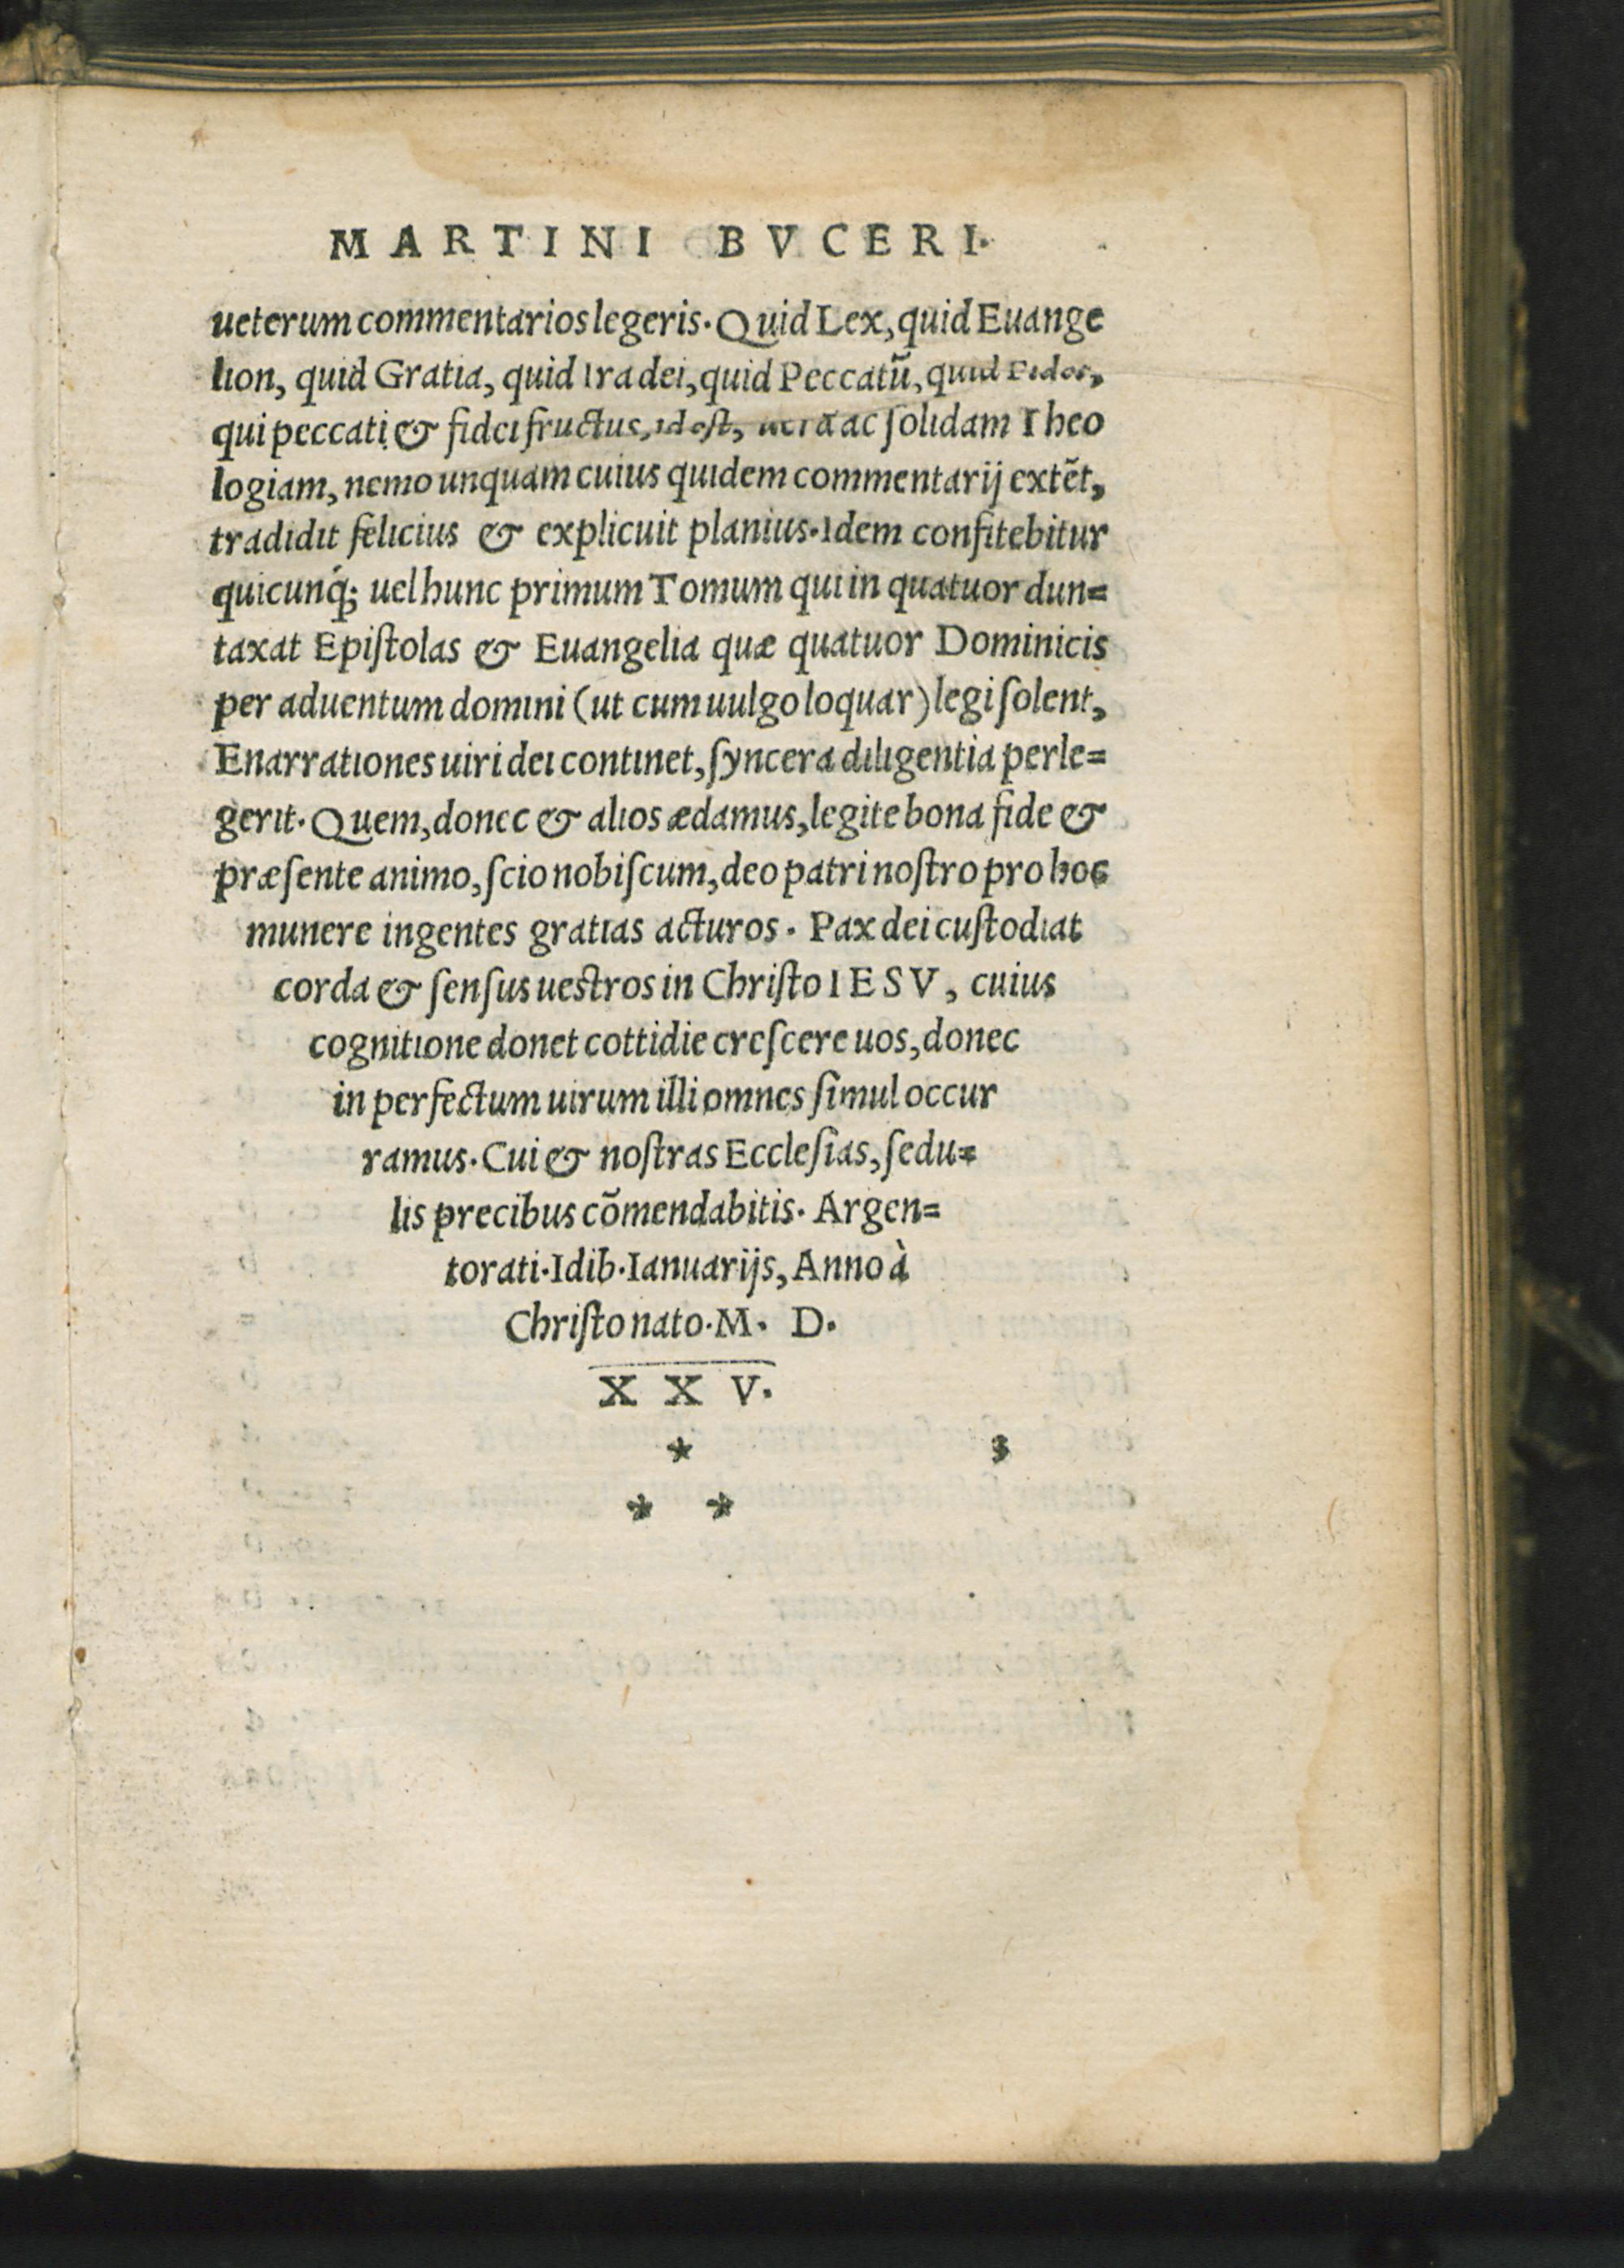 MARTINI BVCERI.
ueterum commentarios legeris. Quid Lex, quid Euange
lion, quid Gratia, quid Ira dei, quid Peccatũ, quid Fides,
qui peccati & fidei fructus, id est, uerã ac ſolidam Theo
logiam, nemo unquam cuius quidem commentarij extẽt,
tradidit felicius & explicuit planius. Idem confitebitur
quicunq́; uel hunc primum Tomum qui in quatuor dun=
taxat Epiſtolas & Euangelia quæ quatuor Dominicis
per aduentum domini (ut cum uulgo loquar) legi ſolent,
Enarrationes uiri dei continet, ſyncera diligentia perle=
gerit. Quem, donec & alios ædamus, legite bona fide &
præſente animo, ſcio nobiſcum, deo patri noſtro pro hoc
munere ingentes gratias acturos. Pax dei cuſtodiat
corda & ſenſus uestros in Chriſto IESV, cuius
cognitione donet cottidie creſcere uos, donec
in perfectum uirum illi omnes ſimul occur
ramus. Cui & noſtras Eccleſias, ſedu=
lis precibus cõmendabitis. Argen=
torati. Idib. Ianuarijs, Anno à
Chriſto nato. M. D.
X X V.
*
* *